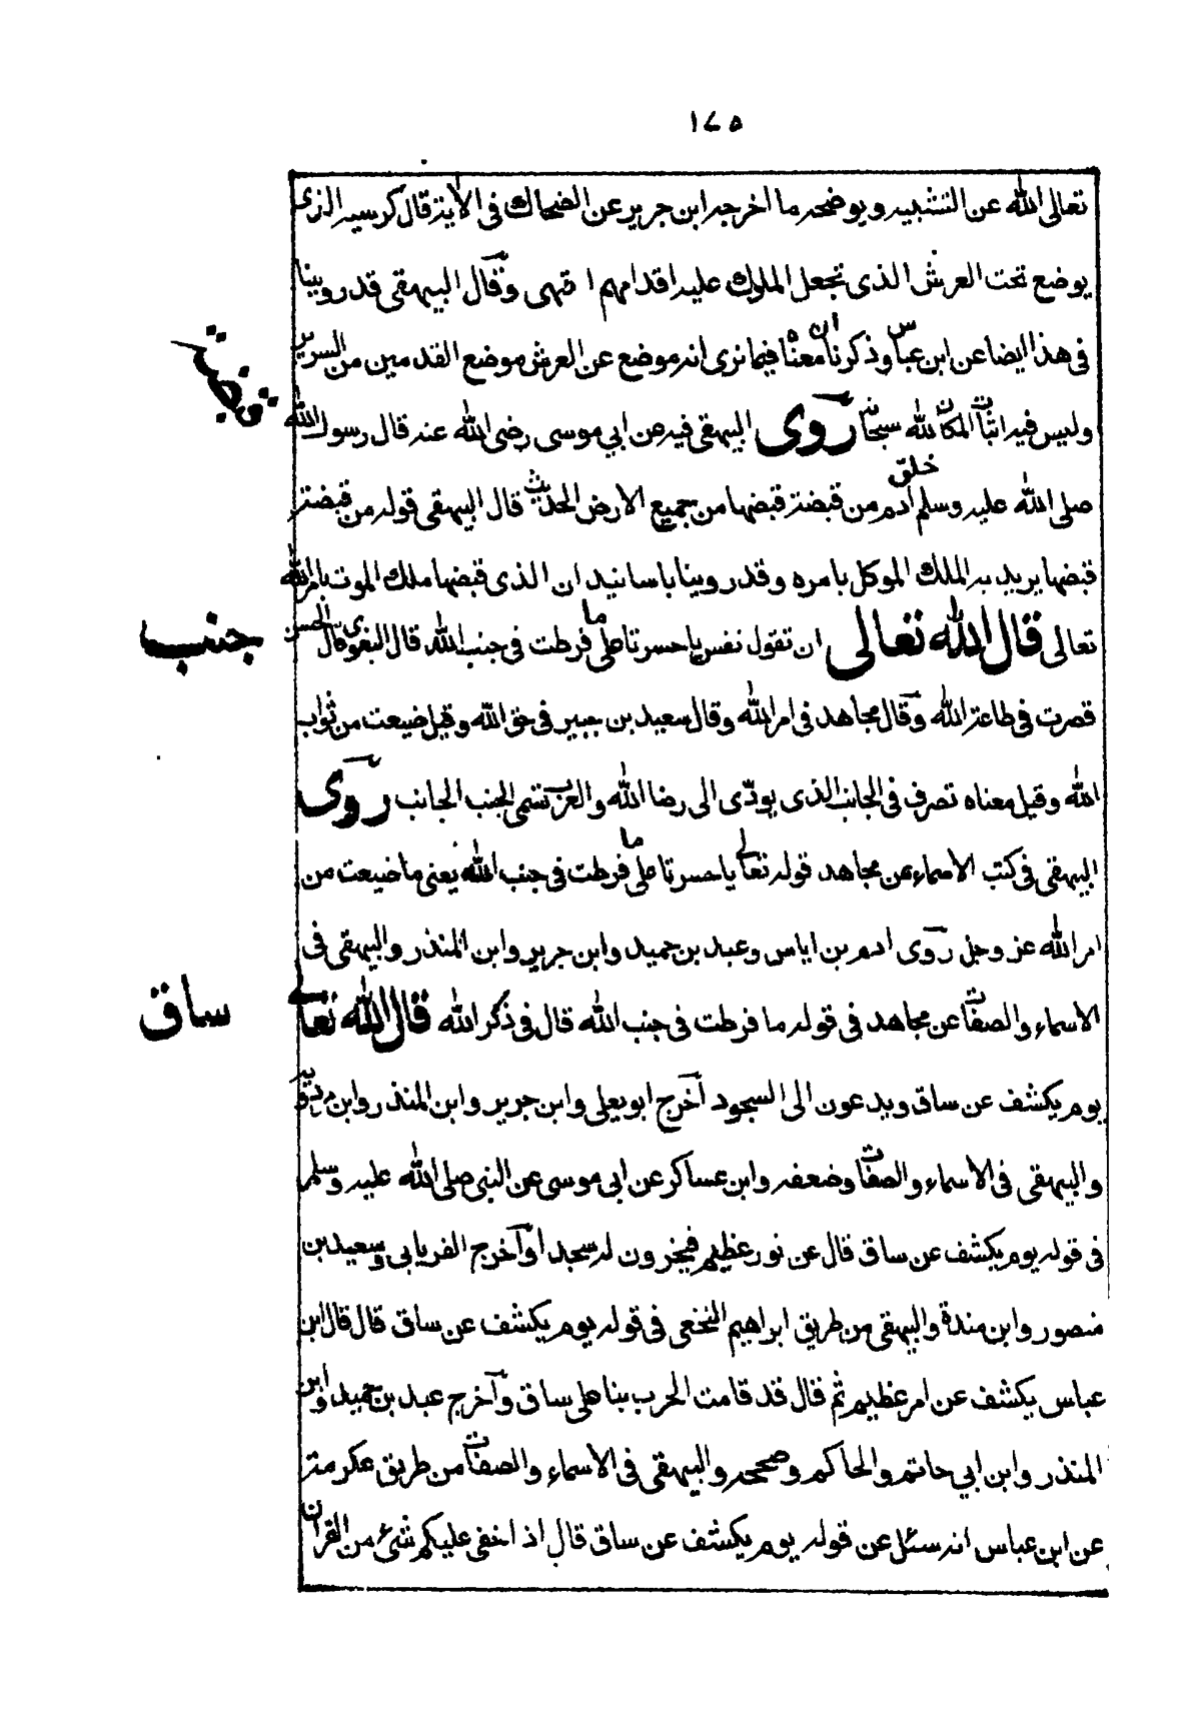 ١٧٥
تعالى الله عن التشبيه ويوضحه ما اخرجه ابن جرير عن الضحاك فى الاية قال كرسيه الذى
يوضع تحت العرش الذى تجعل الملوك عليه اقدامهم انتهى وقال البيهقى قد روينا
فى هذا ايضا عن ابن عباس وذكرنا ان معناه فيما نرى انه موضع عن العرش موضع القدمين من السرير
وليس فيه اثبات المكان لله سبحانه روى البيهقى فيه عن ابي موسى رضى الله عنه قال رسول الله
قبضته
صلى الله عليه وسلم خلق ادم من قبضة قبضها من جميع الارض الحديث قال البيهقى قوله من قبضة
قبضها يريد به الملك الموكل بامره وقد روينا باسانيد ان الذى قبضها ملك الموت بامر الله
تعالى قال الله تعالى ان تقول نفس ياحسرتا على ما فرطت فى جنب الله قال البغوى قال الحسن
جنب
قصرت فى طاعة الله وقال مجاهد فى امر الله وقال سعيد بن جبير فى حق الله وقيل ضيعت من ثواب
الله وقيل معناه تصرف فى الجانب الذى يودّى الى رضا الله والعرب تسمى الجنب الجانب روى
البيهقى فى كتب الاسماء عن مجاهد قوله تعالى ياحسرتا على ما فرطت فى جنب الله يعنى ما ضيعت من
امر الله عز وجل روى ادم بن اياس وعبد بن حميد وابن جرير وابن المنذر والبيهقى فى
الاسماء والصفات عن مجاهد فى قوله ما فرطت فى جنب الله قال فى ذكر الله قال الله تعالى
ساق
يوم يكشف عن ساق ويدعون الى السجود اخرج ابو يعلى وابن جرير وابن المنذر وابن مردويه
والبيهقى فى الاسماء والصفات وضعفه وابن عساكر عن ابى موسى عن النبى صلى الله عليه وسلم
فى قوله يوم يكشف عن ساق قال عن نور عظيم فيخرون له سجدا واخرج الفريابي وسعيد بن
منصور وابن مندة والبيهقى من طريق ابراهيم النخعى فى قوله يوم يكشف عن ساق قال قال ابن
عباس يكشف عن امر عظيم ثم قال قد قامت الحرب بنا على ساق واخرج عبد بن حميد وابن
المنذر وابن ابي حاتم والحاكم وصححه والبيهقى فى الاسماء والصفات من طريق عكرمة
عن ابن عباس انه سئل عن قوله يوم يكشف عن ساق قال اذ اخفى عليكم شئ من القران